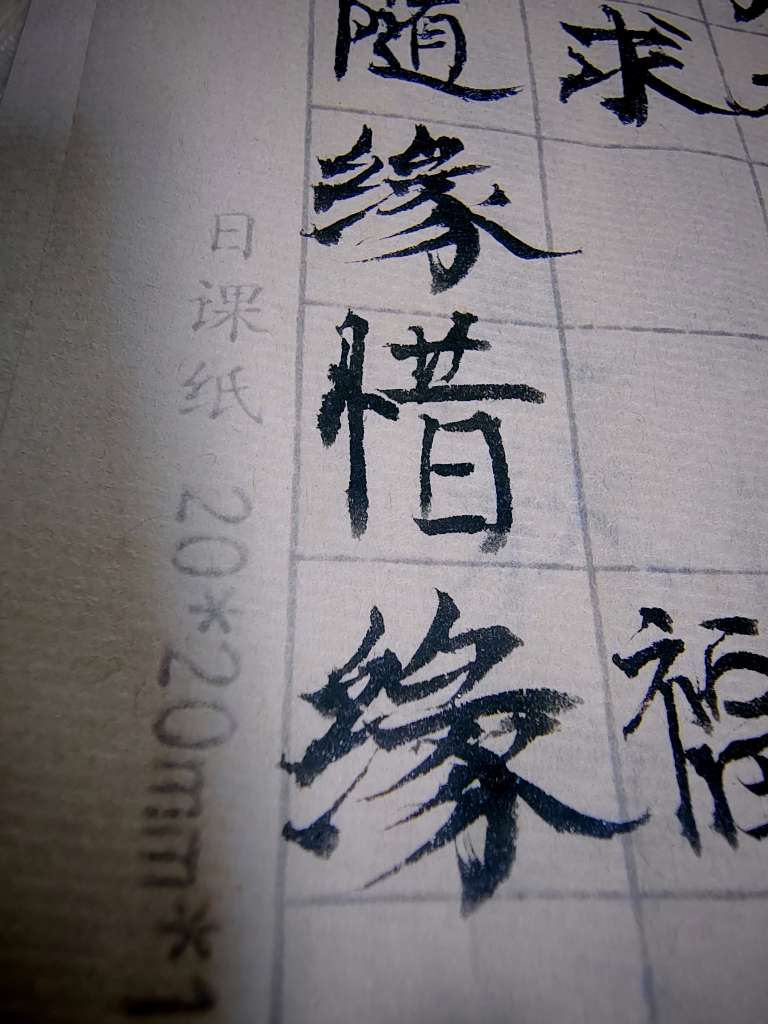 求
福
随缘惜缘
日课纸 20*20mm*1